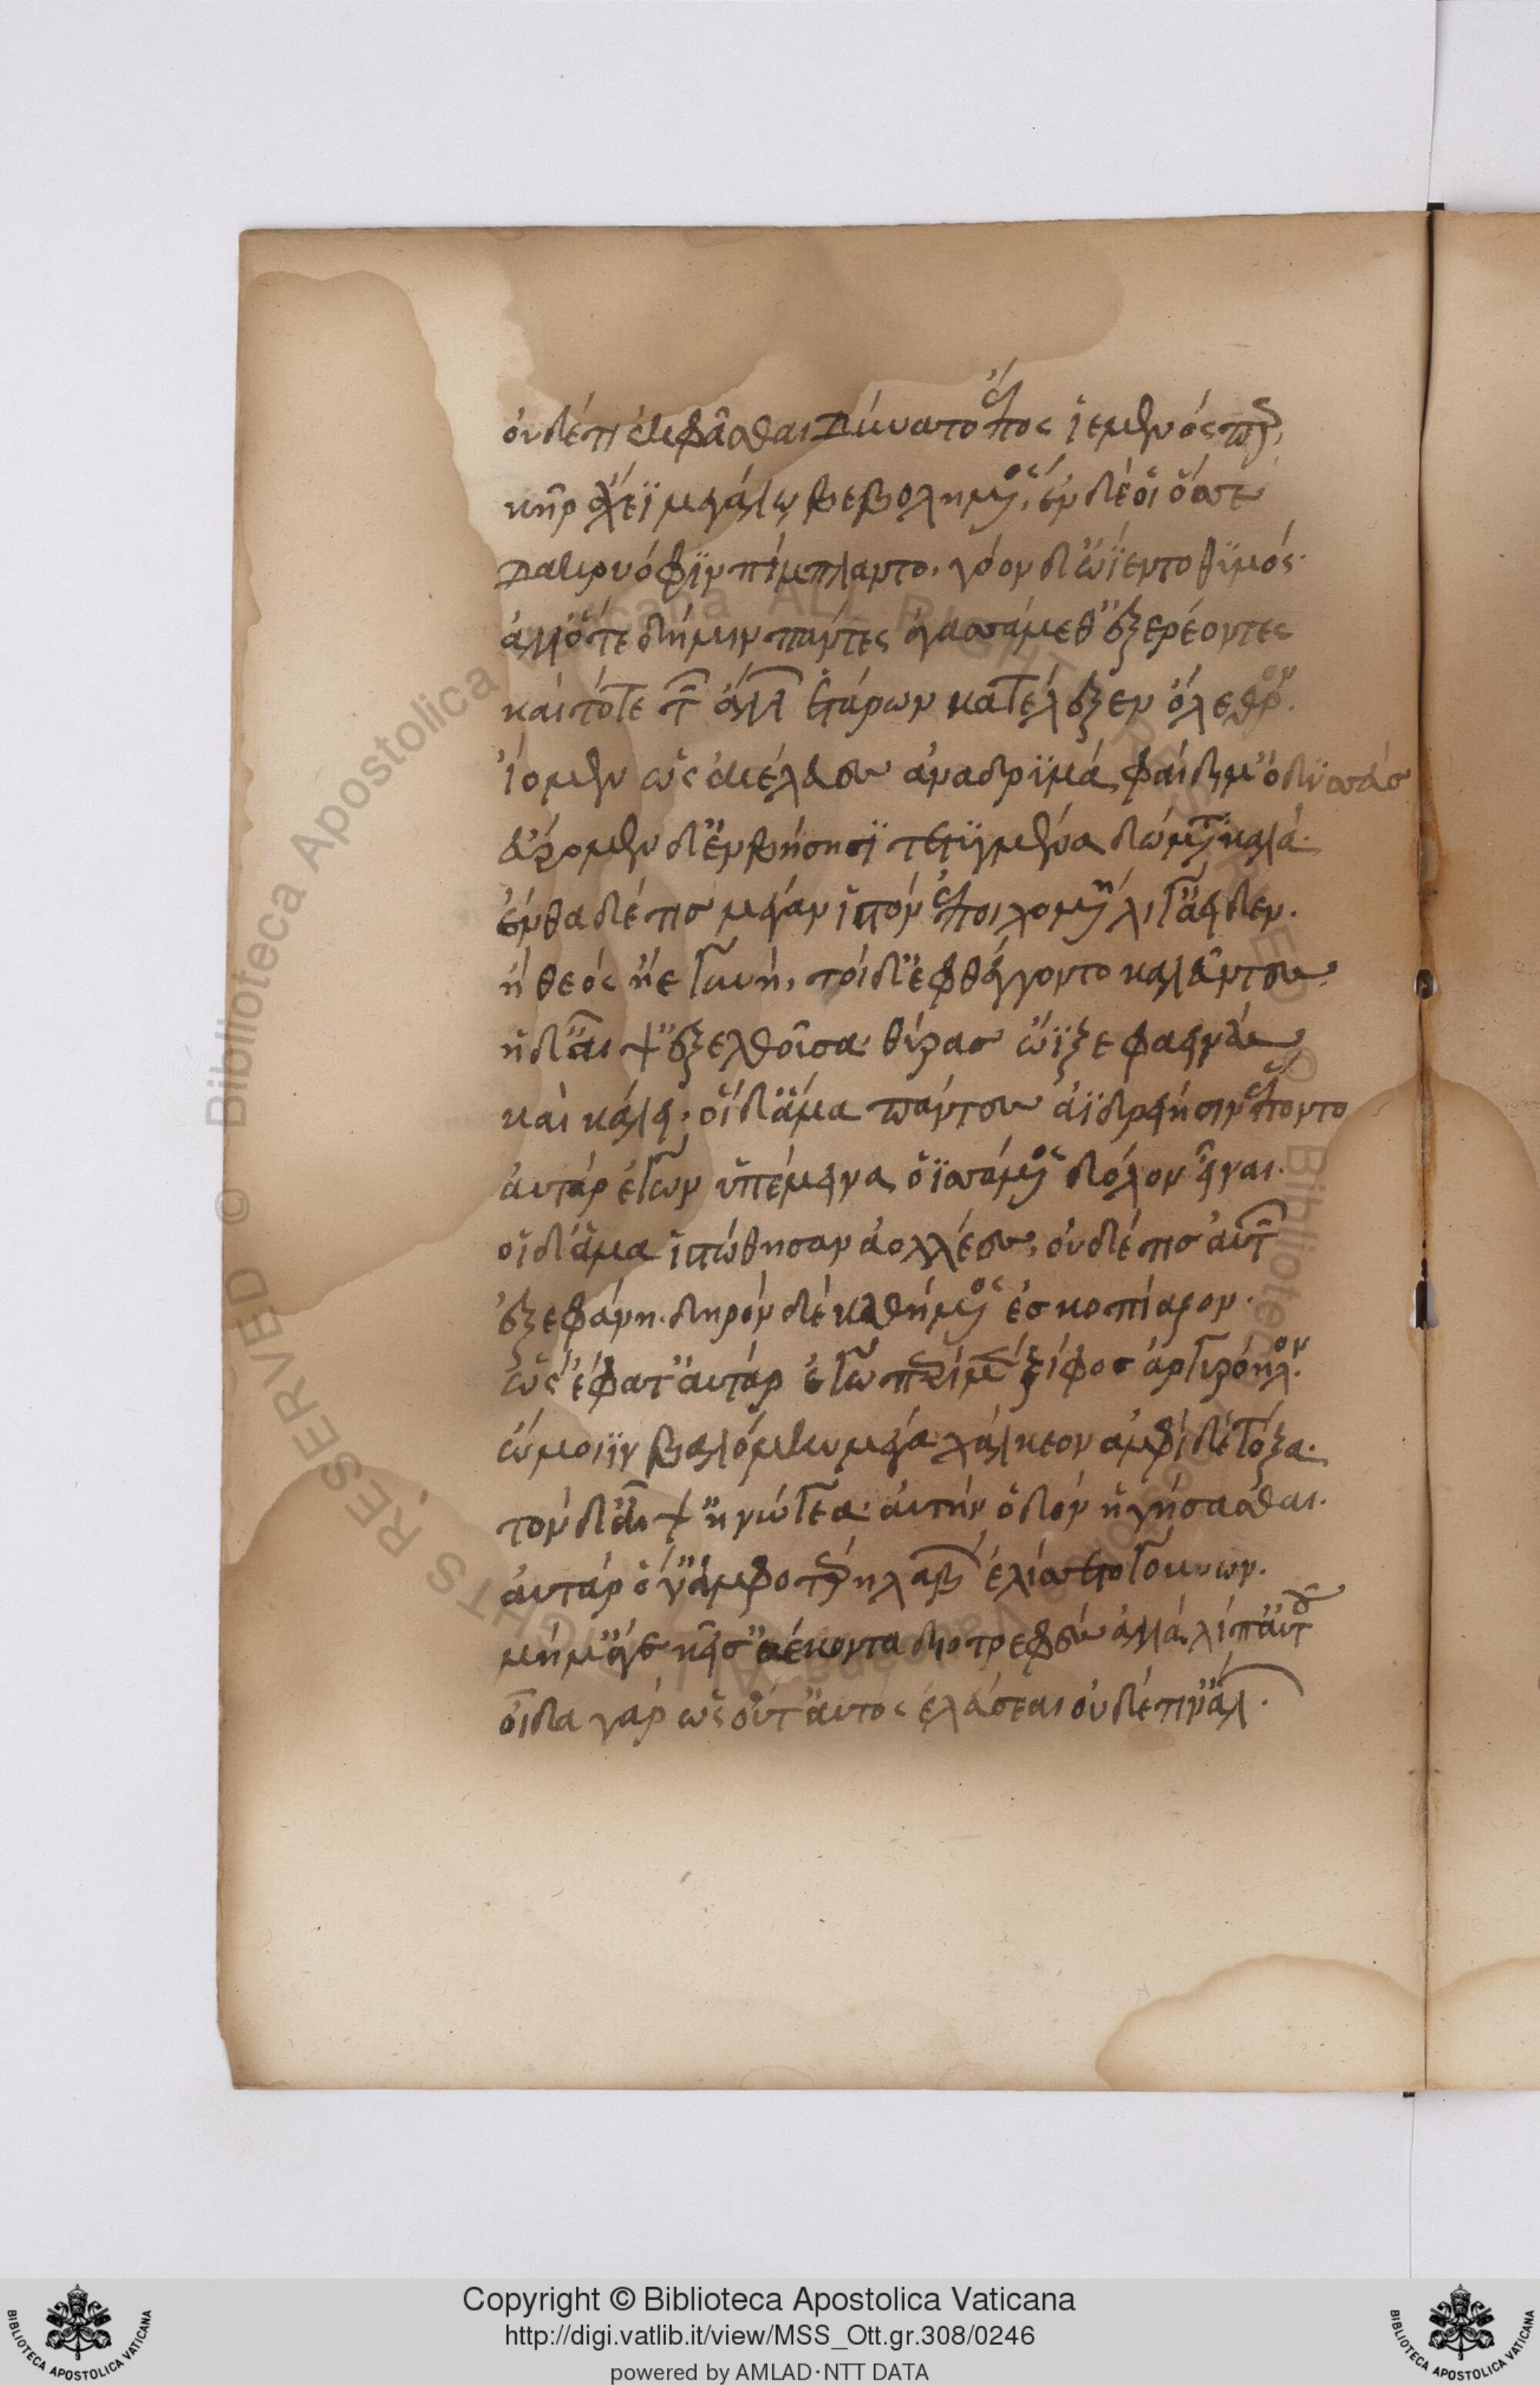 οὐδέ τι ἐκφᾶσθαι δύνατο ἔπος ἱέμενός περ,
κῆρ ἄχεϊ μεγάλω βεβολημένος. ἐν δέ οἱ ὄσσε
δακρυόφϊν πίμπλαντο. γόον δ' ὠΐετο θϋμός.
ἀλλ' ὅτε δή μιν πάντες ἀγασσάμεθ' ἐξερέοντες
καὶ τότε τῶν ἄλλων ἑτάρων κατέλεξεν ὄλεθρον.
ἴομεν ὡς ἐκέλευες ἀνὰ δρϋμά, φαίδιμ' ὀδϋσσεῦ
εὕρομεν δ' ἐν βήσσησϊ τετϋγμένα δώματα καλά.
ἔνθα δέ τις μέγαν ἱστὸν ἐποιχομένη λίγ' ἄειδεν.
ἢ θεὸς ἠὲ γυνή, τοὶ δ' ἐφθέγγοντο καλεῦντες.
ἡ δ' αἶψ' ἐξελθοῦσα θύρας ὤϊξε φαεινὰς
καὶ κάλει. οἱ δ' ἅμα πάντες ἀϊδρείησιν ἕποντο
αὐτὰρ ἐγὼν ὑπέμεινα, ὀϊσσάμενος δόλον εἶναι.
οἱ δ' ἅμ' ἀϊστώθησαν ἀολλέες, οὐδέ τις αὐτῶν
ἐξεφάνη. δηρὸν δὲ καθήμενος ἐσκοπίαζον.
ὣς ἔφατ' αὐτὰρ ἐγὼ περὶ μὲν ξίφος ἀργυρόηλον
ὤμοιϊν βαλόμην μέγα χάλκεον ἀμφὶ δὲ τόξα.
τὸν δ' αἶψ' ἠνώγεα αὐτὴν ὁδὸν ἡγήσασθαι.
αὐτὰρ ὅ γ' ἀμφοτέρηλαβὼν ἐλίσσετο γούνων.
μή μ' ἄγε κεῖσ' ἀέκοντα διοτρεφές, ἀλλὰ λίπ' αὐτοῦ
οἶδα γὰρ ὡς οὔτ' αὐτὸς ἐλεύσεαι οὐδέ τιν' ἄλλον.
Copyright © Biblioteca Apostolica Vaticana
http://digi.vatlib.it/view/MSS_Ott.gr.308/0246
powered by AMLAD·NTT DATA